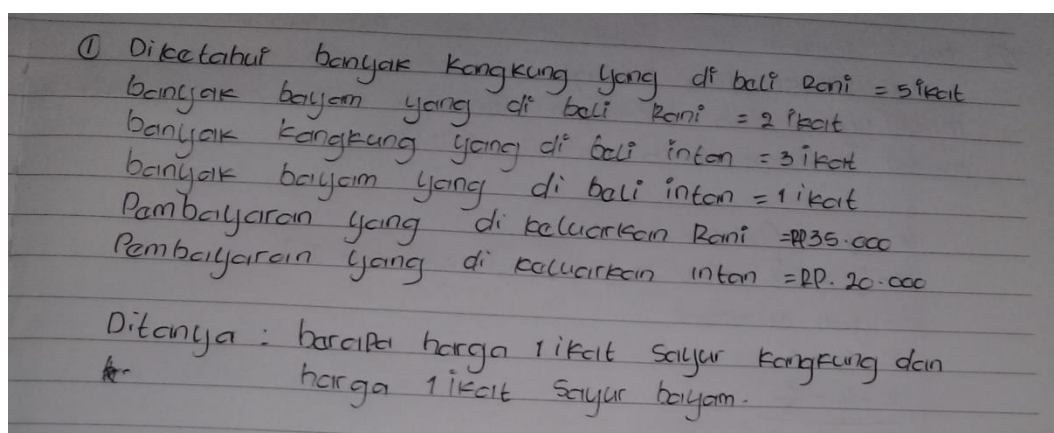 ① Diketahui banyak kangkung yang di bali Rani = 5 ikat
banyak bayam yang di bali Rani = 2 ikat
banyak kangkung yang di bali intan = 3 ikat
banyak bayam yang di bali intan = 1 ikat
Pambayaran yang di kaluarkan Rani = RP35.000
Pembayaran yang di kaluarkan intan = RP. 20.000
Ditanya : barapa harga 1 ikat sayur kangkung dan
harga 1 ikat sayur bayam.